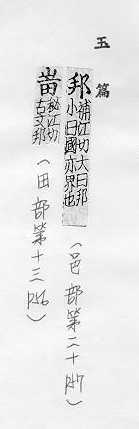 玉篇
邦 補江切大曰邦
小曰國亦界也
(邑部第二十
𤰫 秘江切
古文邦
(田部第十三